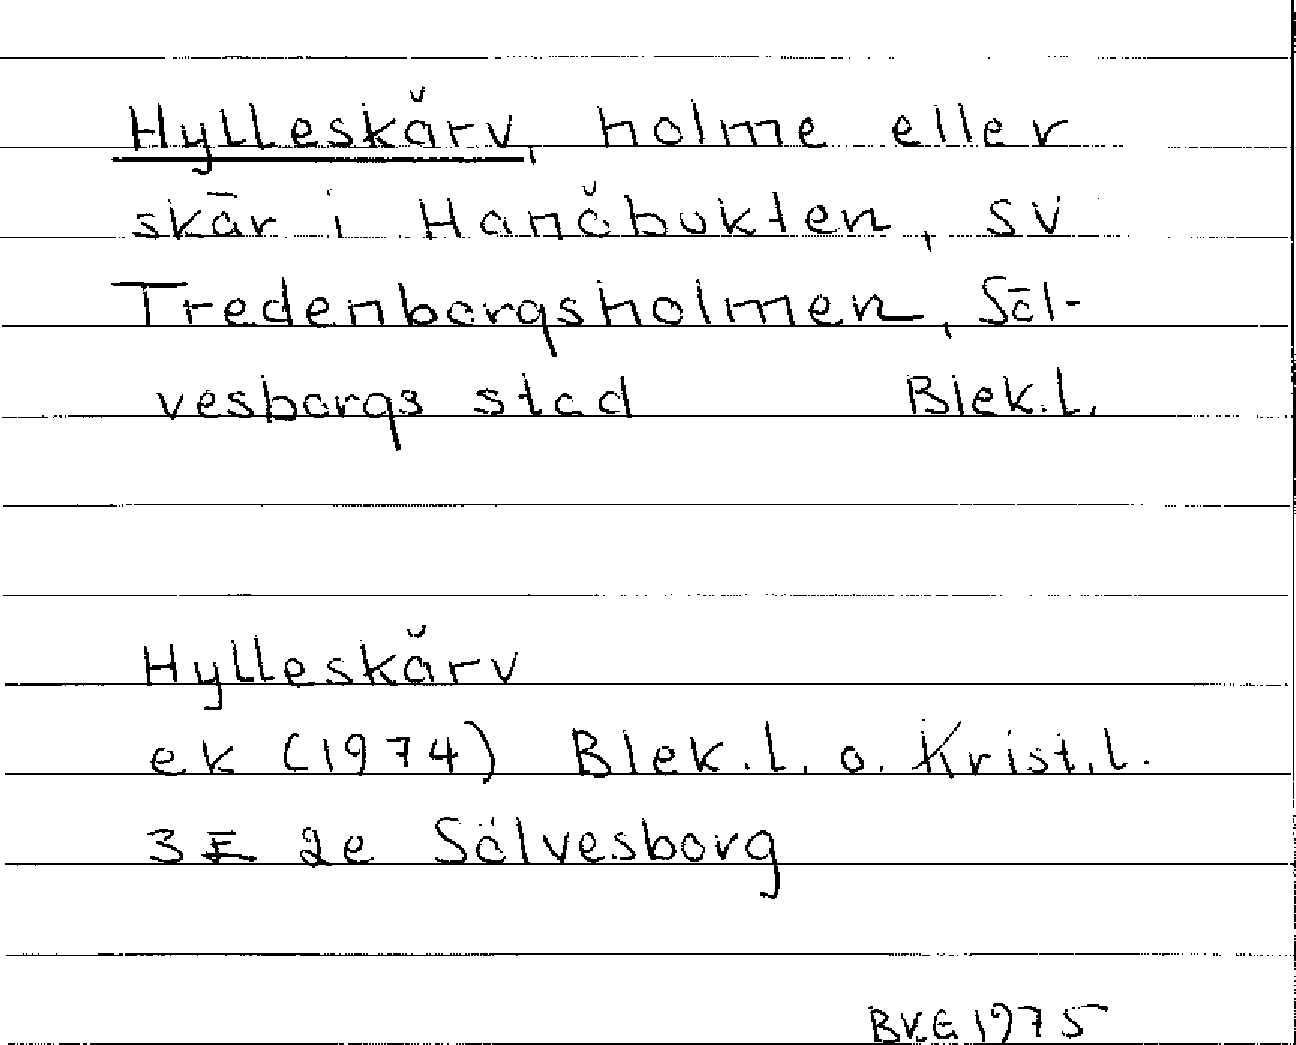 Hylleskärv, holme eller
skär i Hanöbukten, SV
Tredenborgsholmen, Söl-
vesborgs stad Blek.l.
Hylleskärv
ek (1974) Blek.l. o. Krist.l.
3 E 2e Sölvesborg
BKG 1975